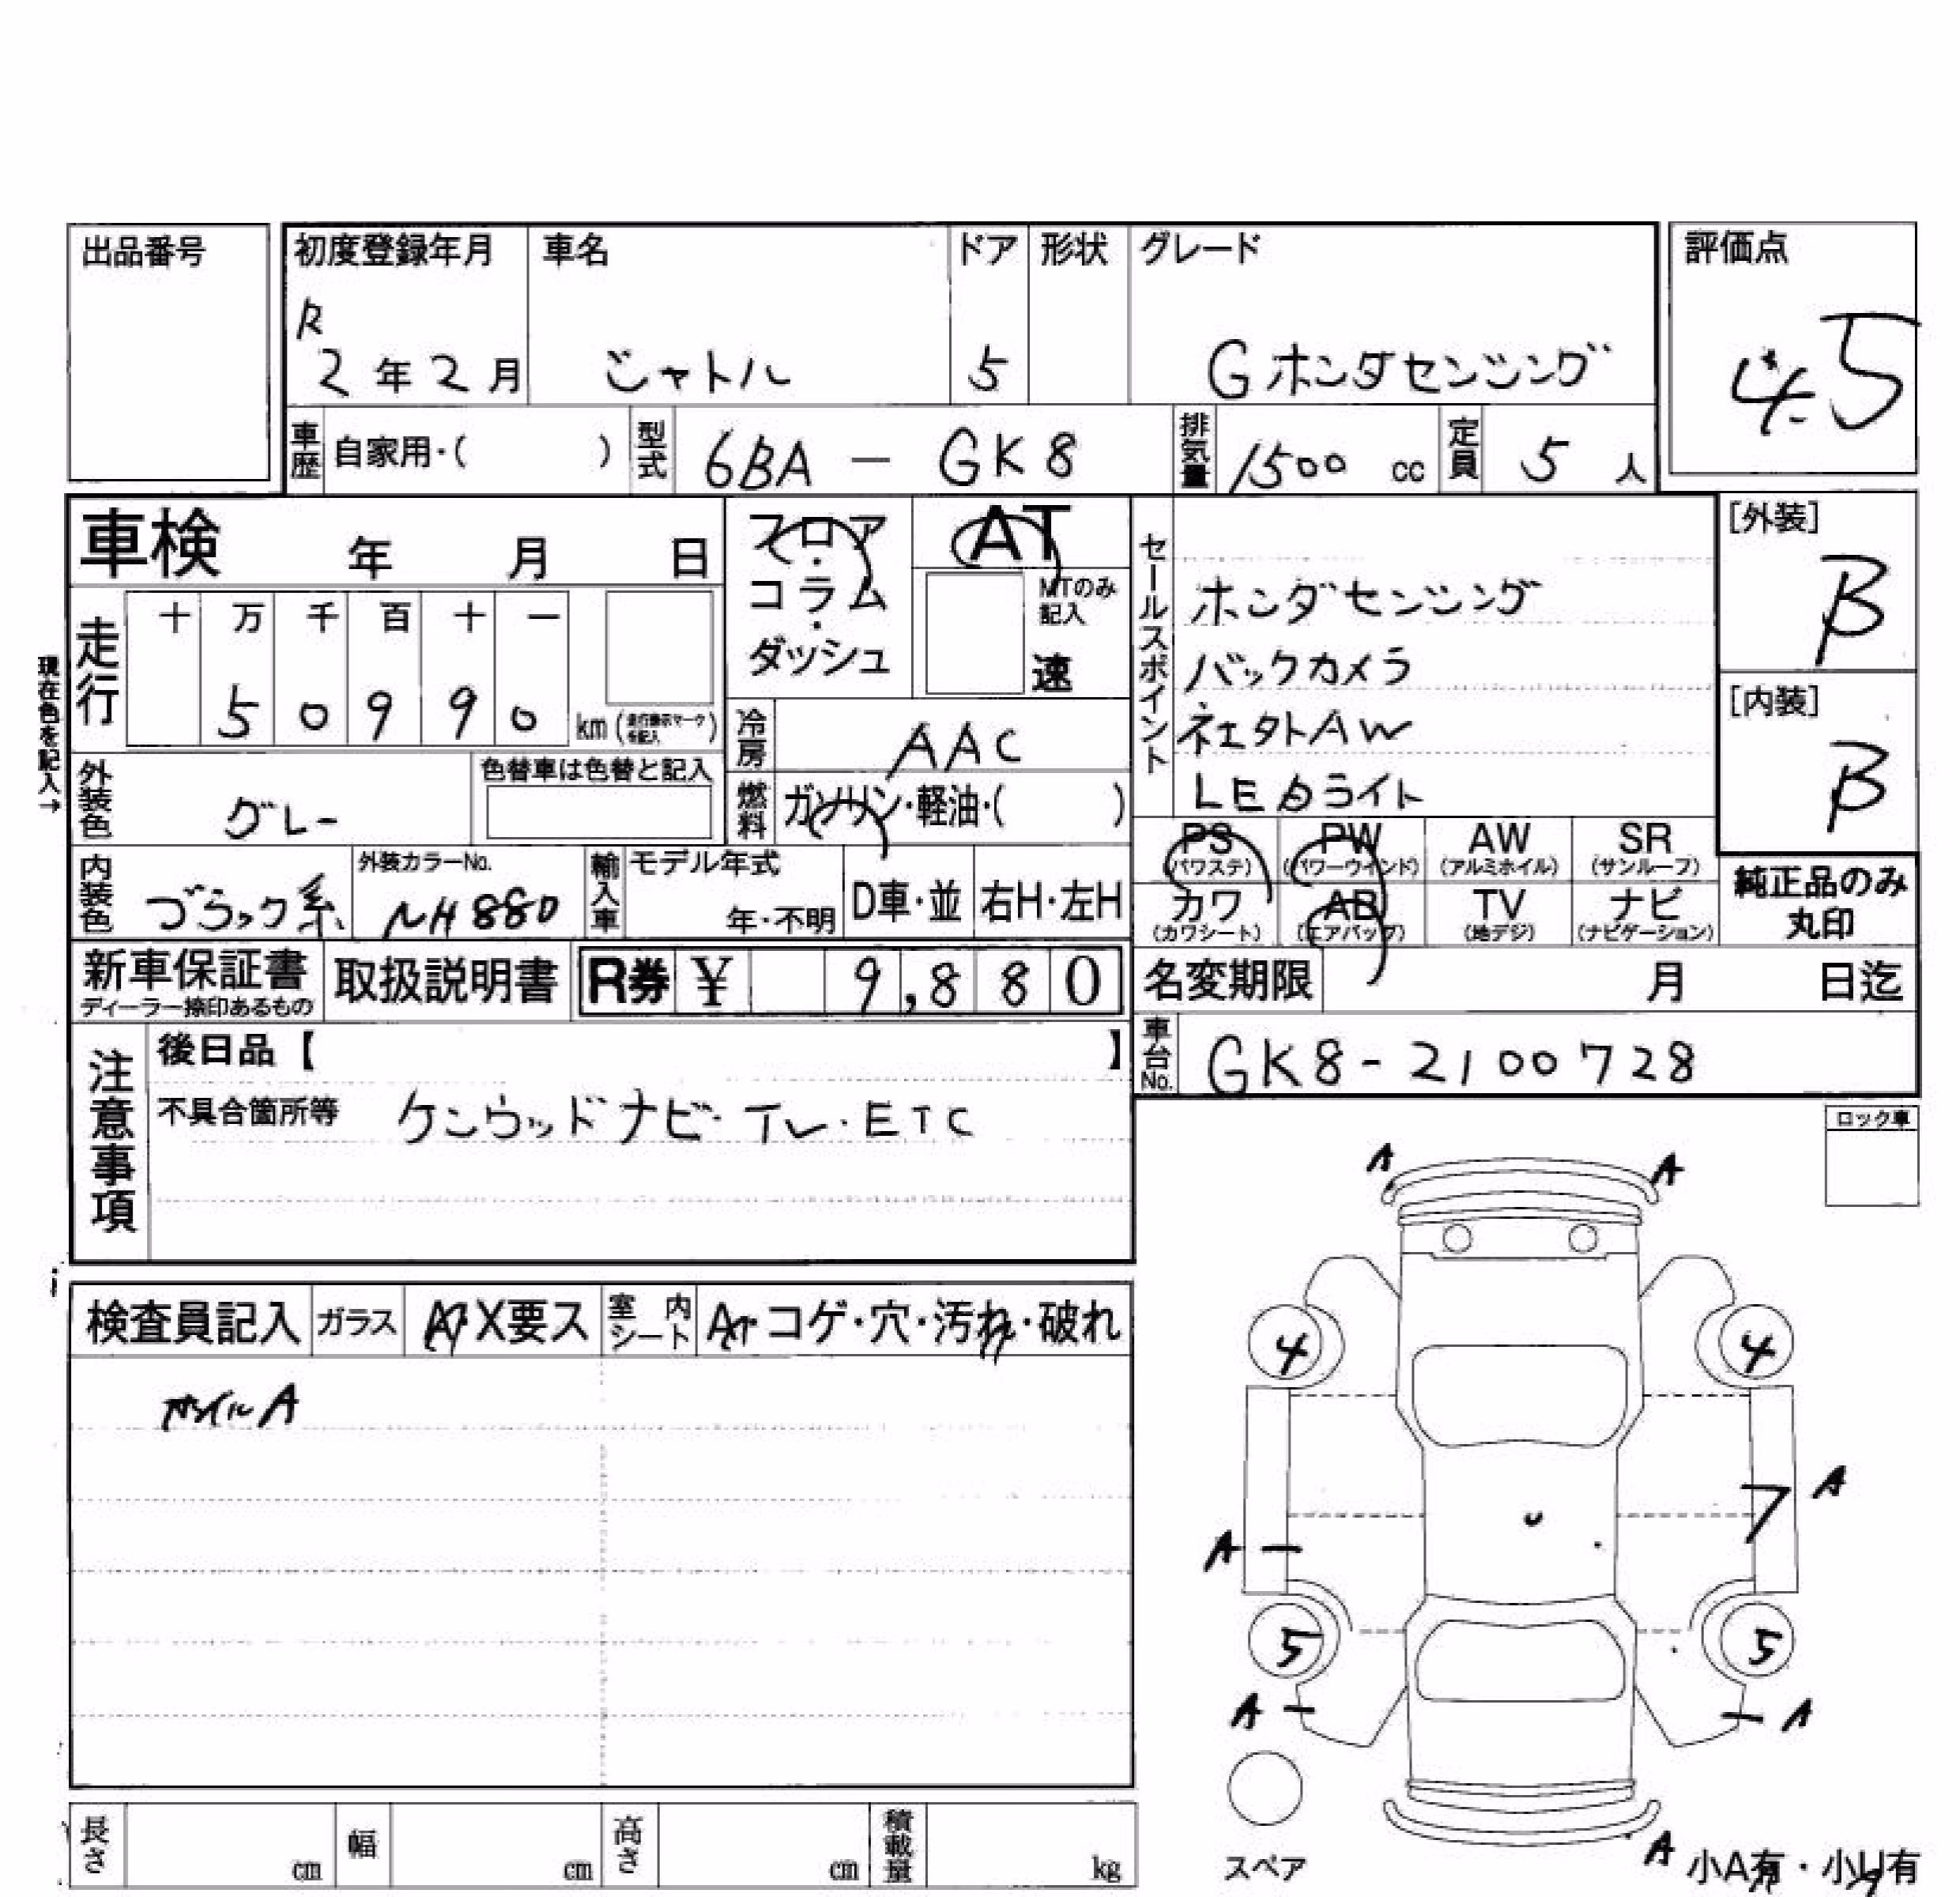 出品番号
初度登録年月 車名 ドア 形状 グレード 評価点
R
2年2月 シャトル 5 Gホンダセンシング 4.5
車歴 自家用・( ) 型式 6BA - GK8 排気量 1500 cc 定員 5 人
車検 年 月 日
フロア・コラム・ダッシュ
AT
MTのみ記入
速
セールスポイント
ホンダセンシング
バックカメラ
社外AW
LEDライト
[外装]
B
[内装]
B
現在色を記入→
走行 十 万 千 百 十 一
5 0 9 9 0 km
冷房 AAC
燃料 ガソリン・軽油・( )
外装色 グレー 色替車は色替と記入
内装色 ブラック系 外装カラーNo. NH880
輸入車 モデル年式 年・不明 D車・並 右H・左H
PS (パワステ) PW (パワーウインド) AW (アルミホイル) SR (サンルーフ)
カワ (カワシート) AB (エアバッグ) TV (地デジ) ナビ (ナビゲーション)
純正品のみ
丸印
新車保証書 ディーラー捺印あるもの 取扱説明書 R券 ¥ 9,880
名変期限 月 日迄
車台No. GK8-2100728
注意事項
後日品【 】
不具合箇所等 ケンウッドナビ・TV・ETC
ロック車
検査員記入 ガラス A・X要ス 室内シート A・コゲ・穴・汚れ・破れ
ホイルA
A A
4 4
A
7
A
5 5
A A
スペア
A 小A有・小U有
長さ cm 幅 cm 高さ cm 積載量 kg